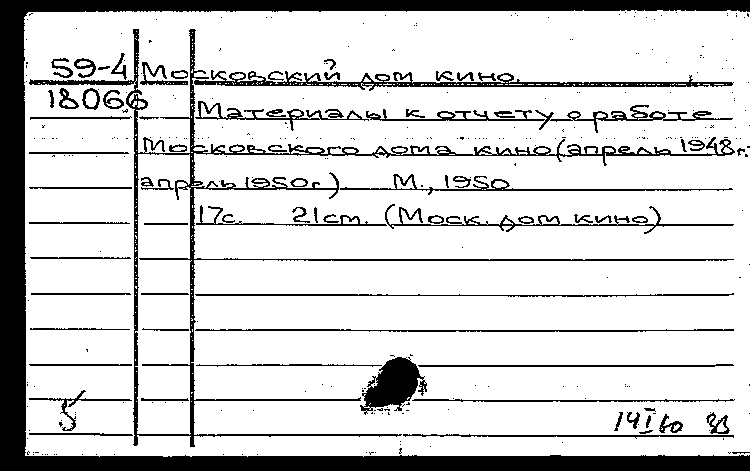 59-4 Московский дом кино.
18066 Материалы к отчету о работе
Московского дома кино (апрель 1948г.-
апрель 1950г.) М., 1950
17с. 21см. (Моск. дом кино)
5
14 I 60